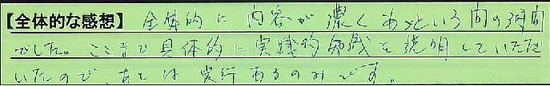 【全体的な感想】 全体的に内容が濃くあっという間の3時間
でした。ここまで具体的に実践的知識を説明していただ
いたので、あとは実行あるのみです。